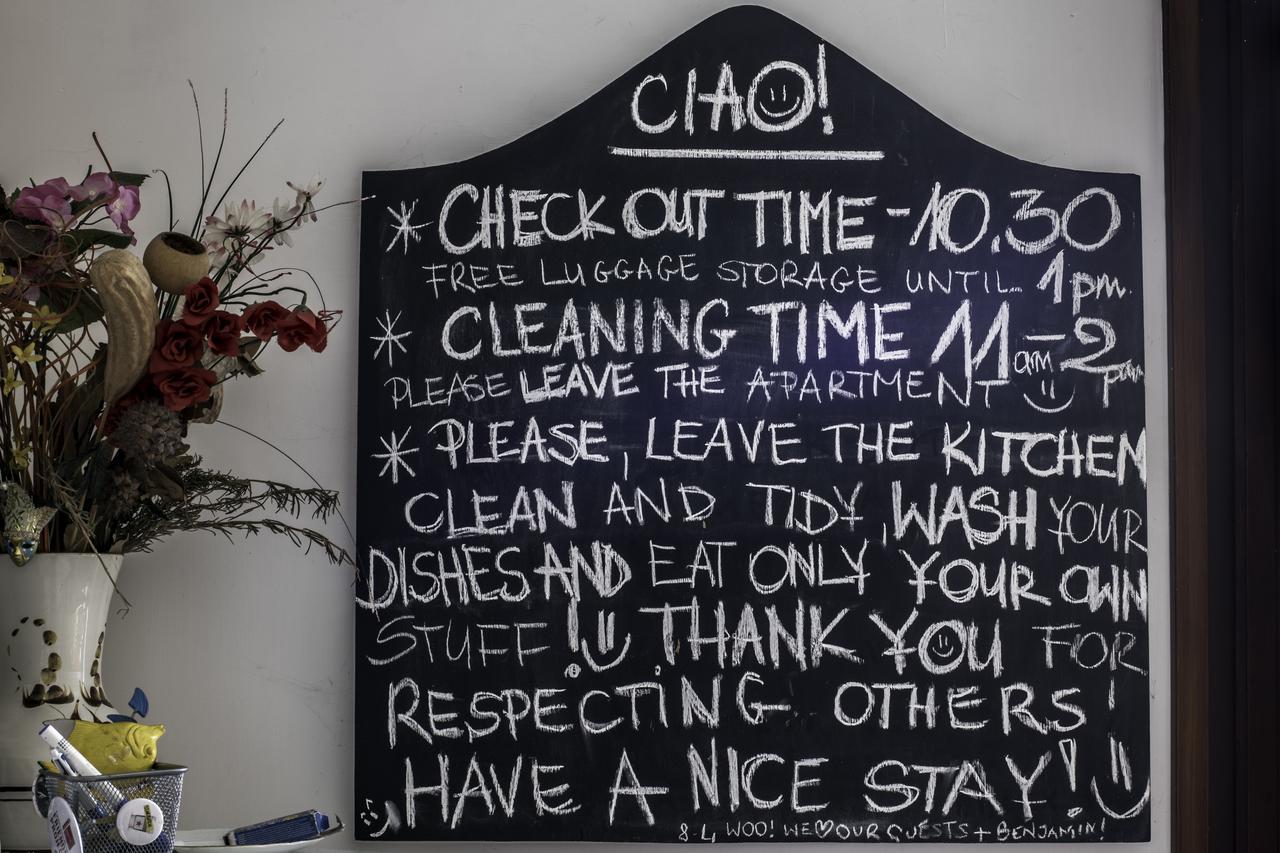 CIAO!
* CHECK OUT TIME - 10.30
FREE LUGGAGE STORAGE UNTIL... 1pm.
* CLEANING TIME 11am - 2pm
PLEASE LEAVE THE APARTMENT
* PLEASE, LEAVE THE KITCHEN
CLEAN AND TIDY, WASH YOUR
DISHES AND EAT ONLY YOUR OWN
STUFF! THANK YOU FOR
RESPECTING OTHERS!
HAVE A NICE STAY!
WOO! WE ♡ OUR GUESTS + BENJAMIN!